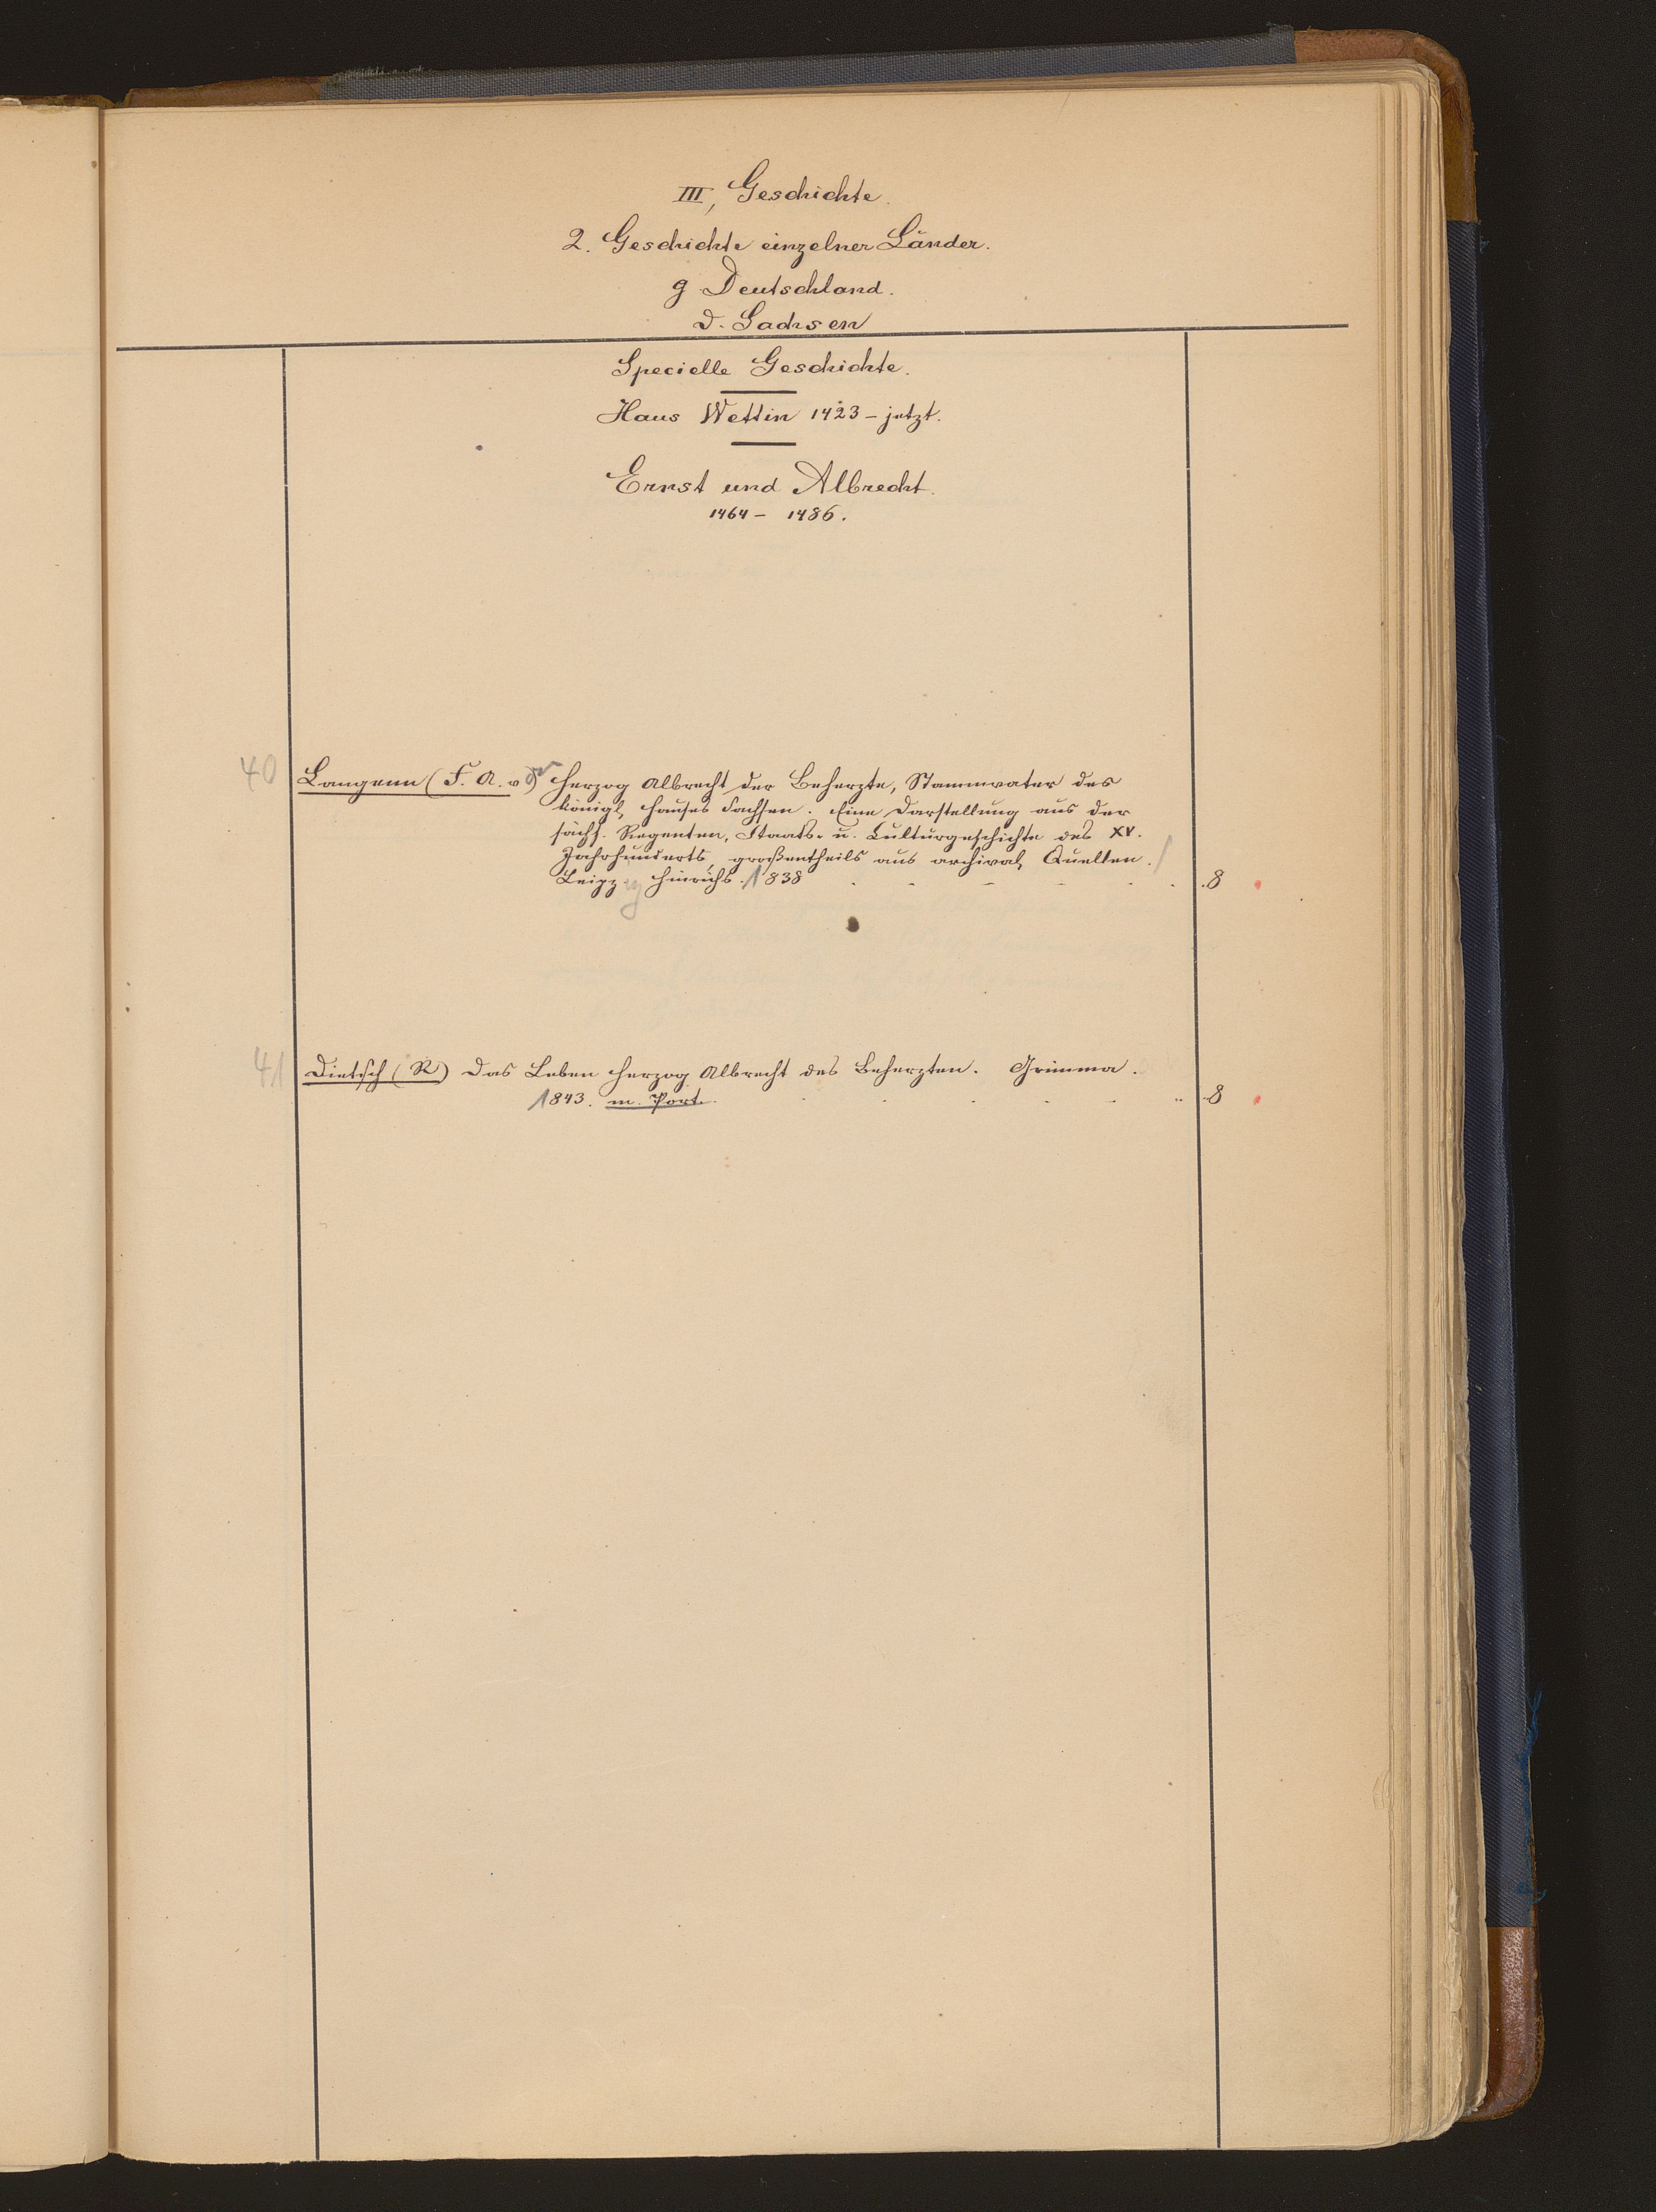 III, Geschichte.
2. Geschichte einzelner Länder.
g Deutschland.
d. Sachsen
Specielle Geschichte.
Haus Wettin 1423 – jetzt.
Ernst und Albrecht.
1464 – 1486.
40 Langenn (F. A. v) Herzog Albrecht der Beherzte, Stammvater des
königl. Hauses Sachsen. Eine Darstellung aus der
sächs. Regenten, Staats- u. Culturgeschichte des XV.
Jahrhunderts, großentheils aus archival. Quellen.
Leipzig Hinrichs. 1838 . 8
41 Dietsch (R) Das Leben Herzog Albrecht des Beherzten. Grimma.
1843. m. Port. . 8